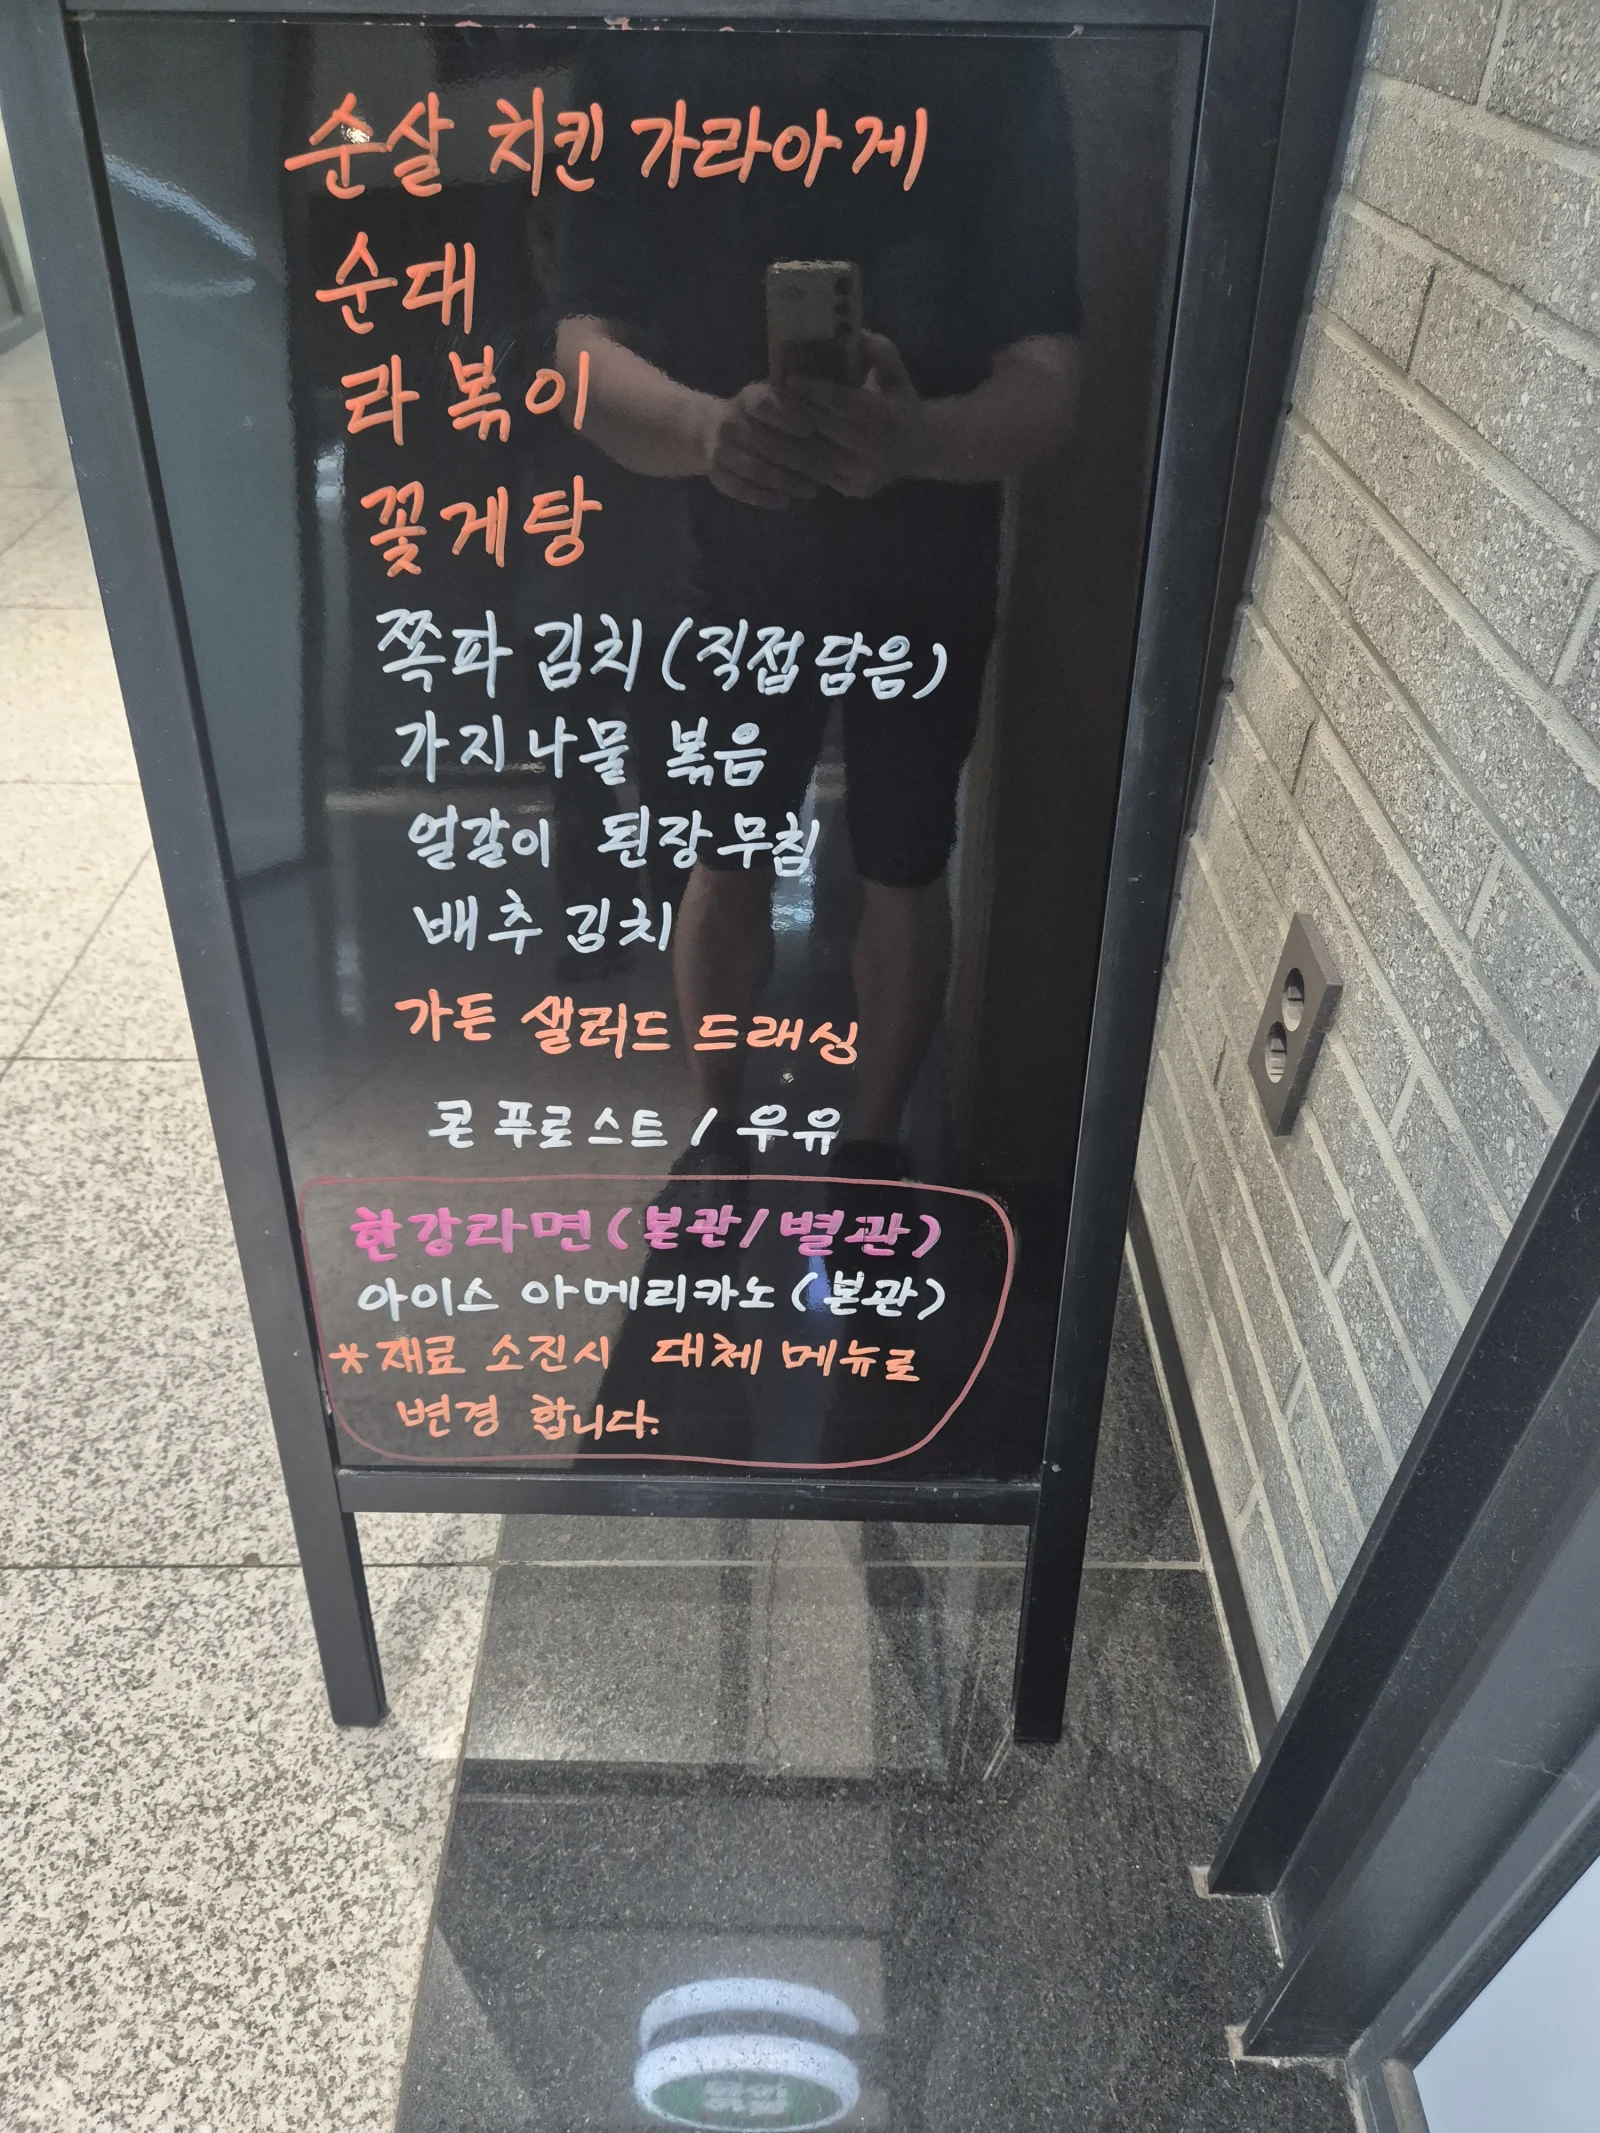 순살 치킨 가라아게
순대
라볶이
꽃게탕
쪽파 김치 (직접 담음)
가지나물 볶음
얼갈이 된장무침
배추 김치
가든 샐러드 드래싱
콘 푸로스트 / 우유
한강라면 (본관/별관)
아이스 아메리카노 (본관)
* 재료 소진시 대체 메뉴로
변경 합니다.